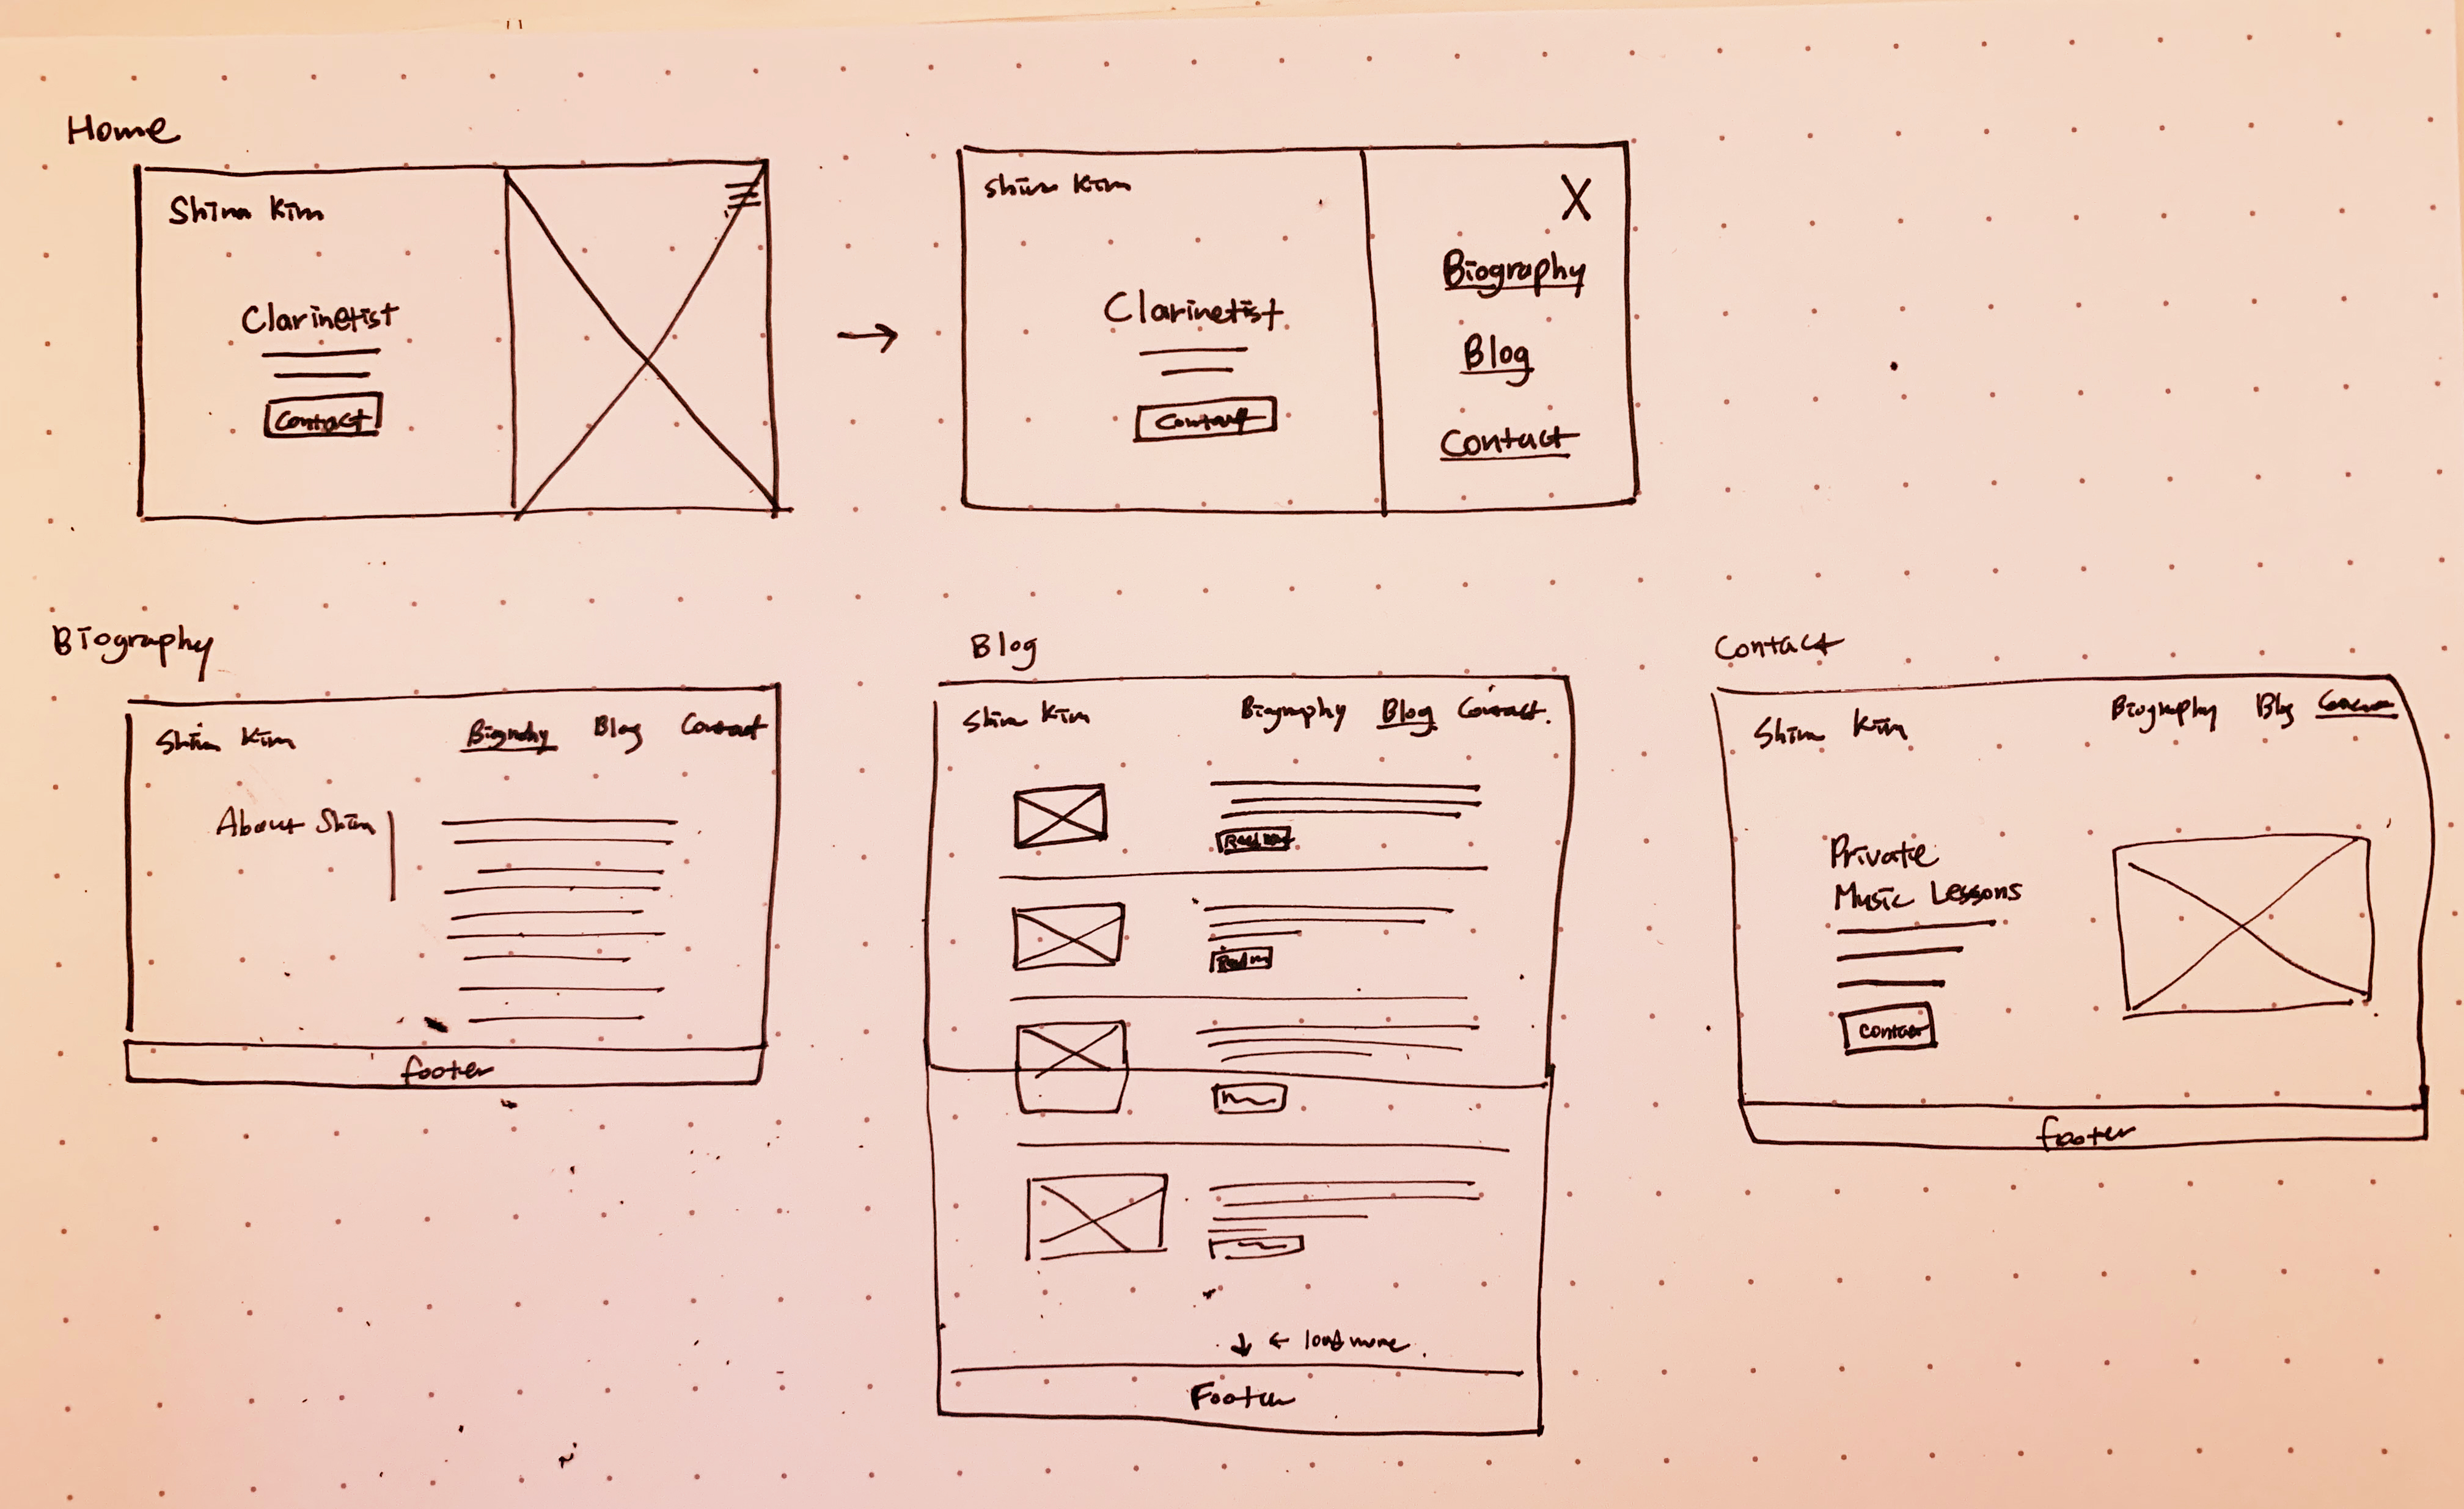 Home
Shim Kim
Clarinetist
Contact
Shim Kim
X
Clarinetist
Contact
Biography
Blog
Contact
Biography
Shim Kim
Biography Blog Contact
About Shim
footer
Blog
Shim Kim
Biography Blog Contact.
Read
← load more.
Footer
Contact
Shim Kim
Biography Blog Contact
Private
Music Lessons
Contact
footer